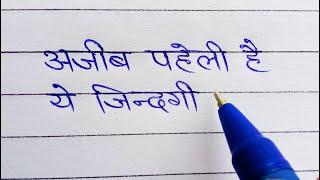 अजीब पहेली है
ये जिन्दगी